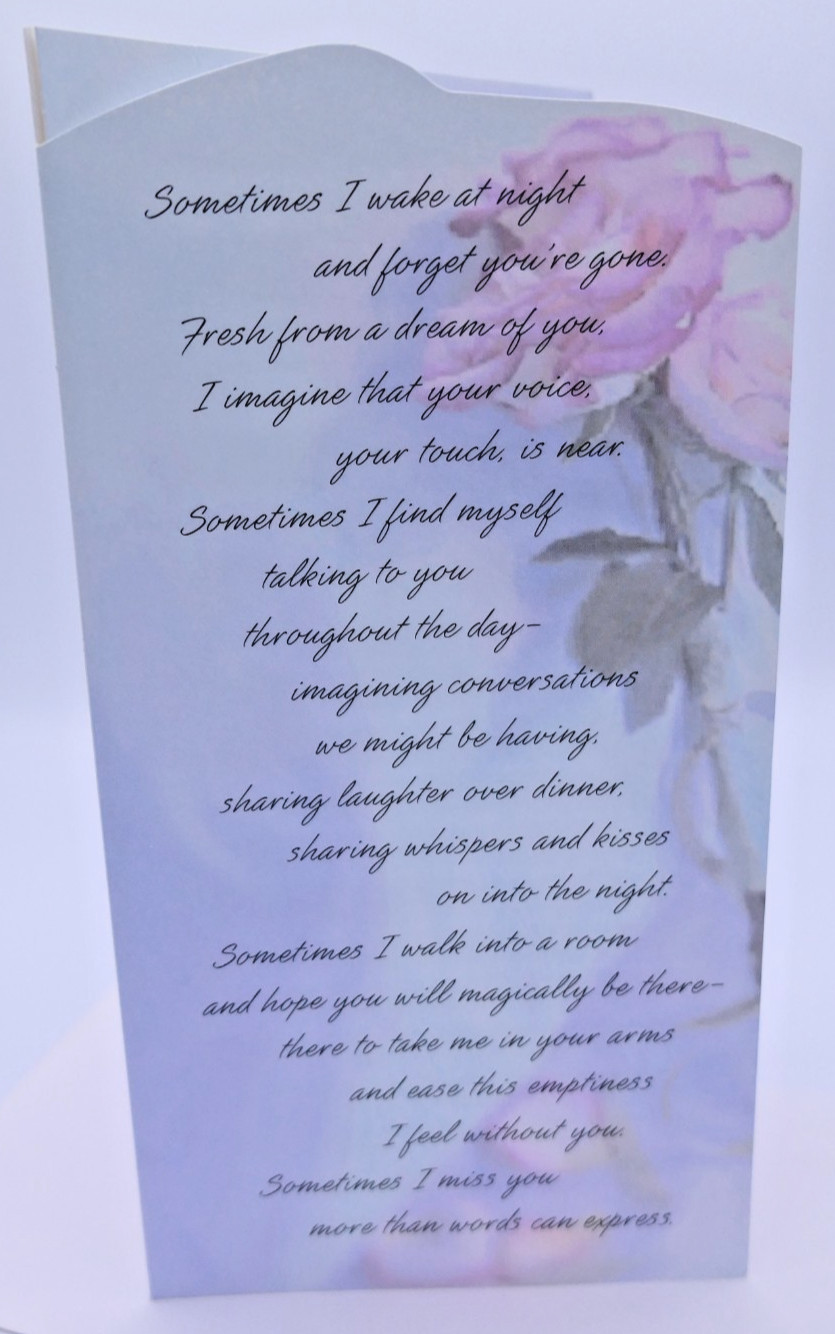 Sometimes I wake at night
and forget you're gone.
Fresh from a dream of you,
I imagine that your voice,
your touch, is near.
Sometimes I find myself
talking to you
throughout the day–
imagining conversations
we might be having,
sharing laughter over dinner,
sharing whispers and kisses
on into the night.
Sometimes I walk into a room
and hope you will magically be there–
there to take me in your arms
and ease this emptiness
I feel without you.
Sometimes I miss you
more than words can express.